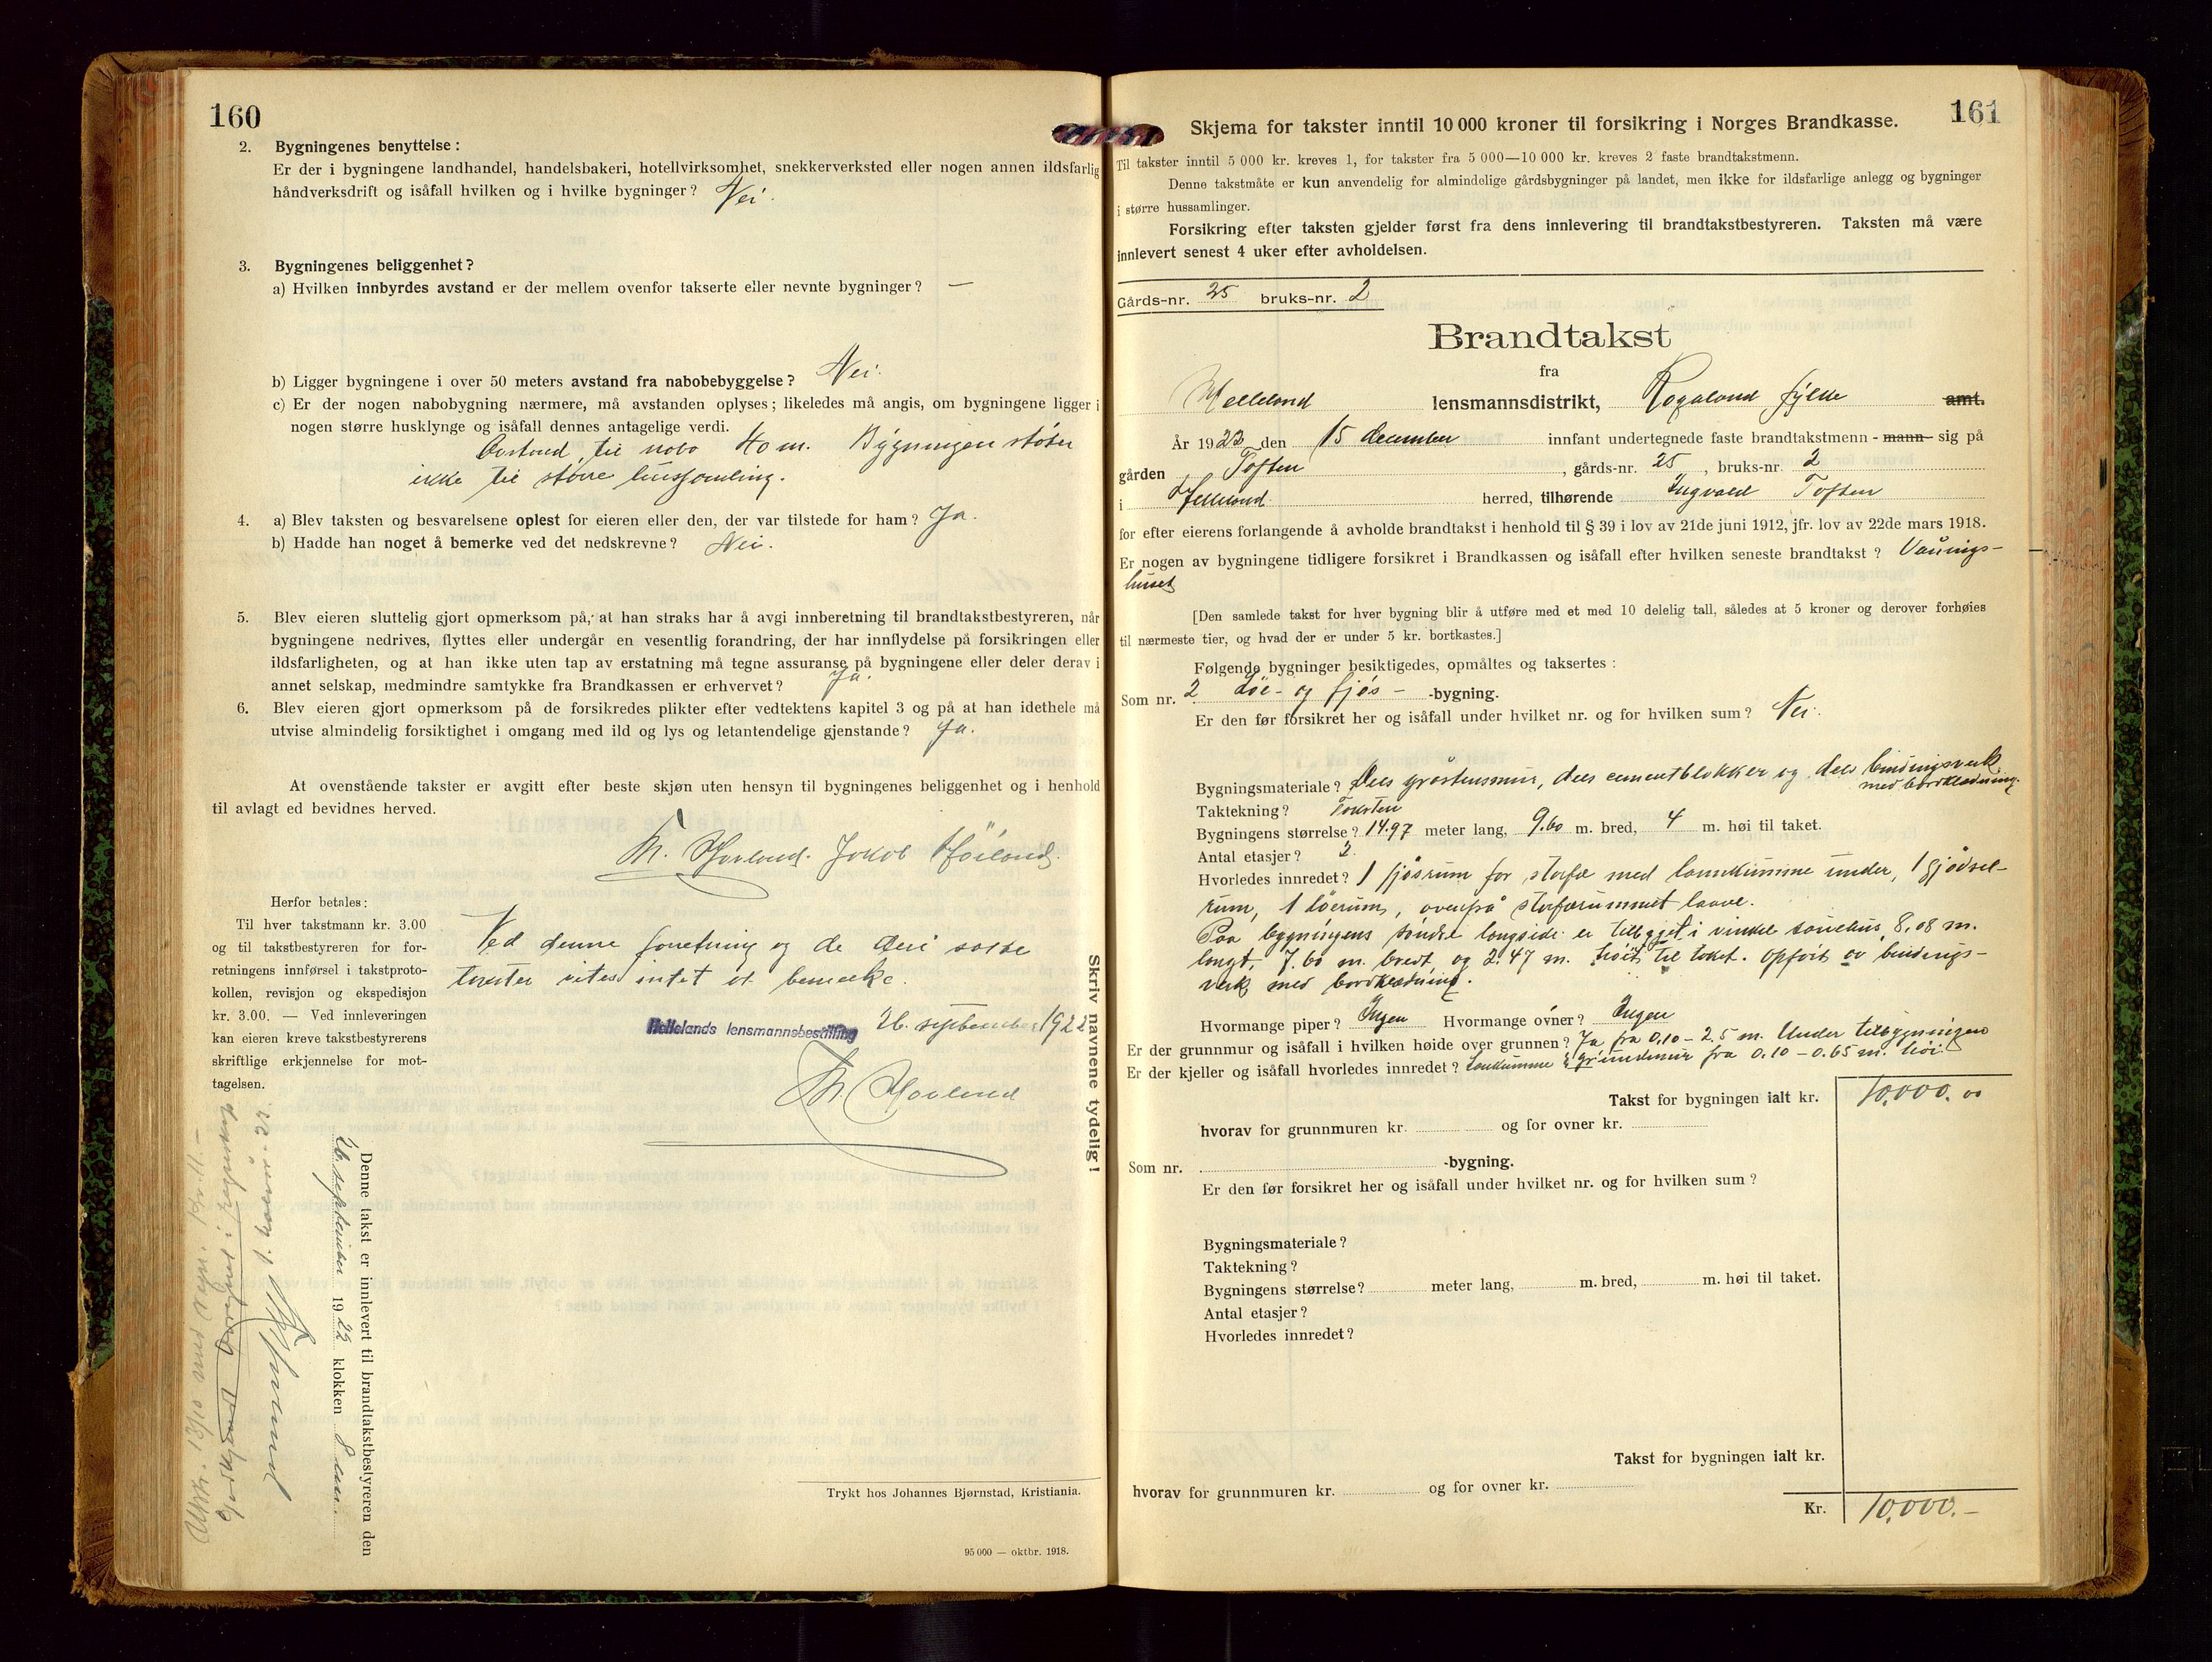 160
2. Bygningenes benyttelse:
Er der i bygningene landhandel, handelsbakeri, hotellvirksomhet, snekkerverksted eller nogen annen ildsfarlig
håndverksdrift og isåfall hvilken og i hvilke bygninger? Nei.
3. Bygningenes beliggenhet?
a) Hvilken innbyrdes avstand er der mellem ovenfor takserte eller nevnte bygninger? —
b) Ligger bygningene i over 50 meters avstand fra nabobebyggelse? Nei.
c) Er der nogen nabobygning nærmere, må avstanden oplyses; likeledes må angis, om bygningene ligger i
nogen større husklynge og isåfall dennes antagelige verdi.
Avstand til nabo 40 m. Bygningen støter
ikke til større hussamling.
4. a) Blev taksten og besvarelsene oplest for eieren eller den, der var tilstede for ham? Ja.
b) Hadde han noget å bemerke ved det nedskrevne? Nei.
5. Blev eieren sluttelig gjort opmerksom på, at han straks har å avgi innberetning til brandtakstbestyreren, når
bygningene nedrives, flyttes eller undergår en vesentlig forandring, der har innflydelse på forsikringen eller
ildsfarligheten, og at han ikke uten tap av erstatning må tegne assuranse på bygningene eller deler derav i
annet selskap, medmindre samtykke fra Brandkassen er erhvervet? Ja.
6. Blev eieren gjort opmerksom på de forsikredes plikter efter vedtektens kapitel 3 og på at han idethele må
utvise almindelig forsiktighet i omgang med ild og lys og letantendelige gjenstande? Ja.
At ovenstående takster er avgitt efter beste skjøn uten hensyn til bygningenes beliggenhet og i henhold
til avlagt ed bevidnes herved.
Th. Hovland. Jakob Høiland.
Herfor betales:
Til hver takstmann kr. 3.00
og til takstbestyreren for for-
retningens innførsel i takstproto-
kollen, revisjon og ekspedisjon
kr. 3.00. — Ved innleveringen
kan eieren kreve takstbestyrerens
skriftlige erkjennelse for mot-
tagelsen.
Ved denne forretning og de deri satte
takster vites intet at bemerke.
Hellelands lensmannsbestilling 26. september 1922
Th. Hovland
Skriv navnene tydelig!
Denne takst er innlevert til brandtakstbestyreren den
26. september 1922 klokken 8 em.
Utskr. 13/10 med regn. kr. 11.-
Trykt hos Johannes Bjørnstad, Kristiania.
95 000 — oktbr. 1918.
161
Skjema for takster inntil 10 000 kroner til forsikring i Norges Brandkasse.
Til takster inntil 5 000 kr. kreves 1, for takster fra 5 000—10 000 kr. kreves 2 faste brandtakstmenn.
Denne takstmåte er kun anvendelig for almindelige gårdsbygninger på landet, men ikke for ildsfarlige anlegg og bygninger
i større hussamlinger.
Forsikring efter taksten gjelder først fra dens innlevering til brandtakstbestyreren. Taksten må være
innlevert senest 4 uker efter avholdelsen.
Gårds-nr. 25 bruks-nr. 2
Brandtakst
fra
Helleland lensmannsdistrikt, Rogaland fylke amt.
År 1922 den 15 december innfant undertegnede faste brandtakstmenn - mann - sig på
gården Toften, gårds-nr. 25, bruks-nr. 2
i Helleland herred, tilhørende Ingvald Toften
for efter eierens forlangende å avholde brandtakst i henhold til § 39 i lov av 21de juni 1912, jfr. lov av 22de mars 1918.
Er nogen av bygningene tidligere forsikret i Brandkassen og isåfall efter hvilken seneste brandtakst? Vånings-
huset
[Den samlede takst for hver bygning blir å utføre med et med 10 delelig tall, således at 5 kroner og derover forhøies
til nærmeste tier, og hvad der er under 5 kr. bortkastes.]
Følgende bygninger besiktigedes, opmåltes og taksertes:
Som nr. 2 Løe- og fjøs- -bygning.
Er den før forsikret her og isåfall under hvilket nr. og for hvilken sum? Nei.
Bygningsmateriale? Dels gråstensmur, dels cementblokker og dels bindingsverk
med bordklædning.
Taktekning? Taksten
Bygningens størrelse? 14.97 meter lang, 9.60 m. bred, 4 m. høi til taket.
Antal etasjer? 2
Hvorledes innredet? 1 fjøsrum for storfæ med lannkumme under, 1 gjødsel-
rum, 1 løerum, ovenpå storfærummet laave.
Paa bygningens søndre langside er tilbygget i vinkel sauehus, 8,08 m.
langt, 7.60 m. bredt og 2.47 m. høit til taket. Opført av bindings-
verk med bordklædning.
Hvormange piper? Ingen Hvormange ovner? Ingen
Er der grunnmur og isåfall i hvilken høide over grunnen? Ja fra 0,10 - 2.5 m. Under tilbygningen
Er der kjeller og isåfall hvorledes innredet? Lankumme grundmur fra 0.10 - 0.65 m. høi.
Takst for bygningen ialt kr. 10,000.00
hvorav for grunnmuren kr. og for ovner kr.
Som nr. -bygning.
Er den før forsikret her og isåfall under hvilket nr. og for hvilken sum?
Bygningsmateriale?
Taktekning?
Bygningens størrelse? meter lang, m. bred, m. høi til taket.
Antal etasjer?
Hvorledes innredet?
Takst for bygningen ialt kr.
hvorav for grunnmuren kr. og for ovner kr.
Kr. 10,000.-